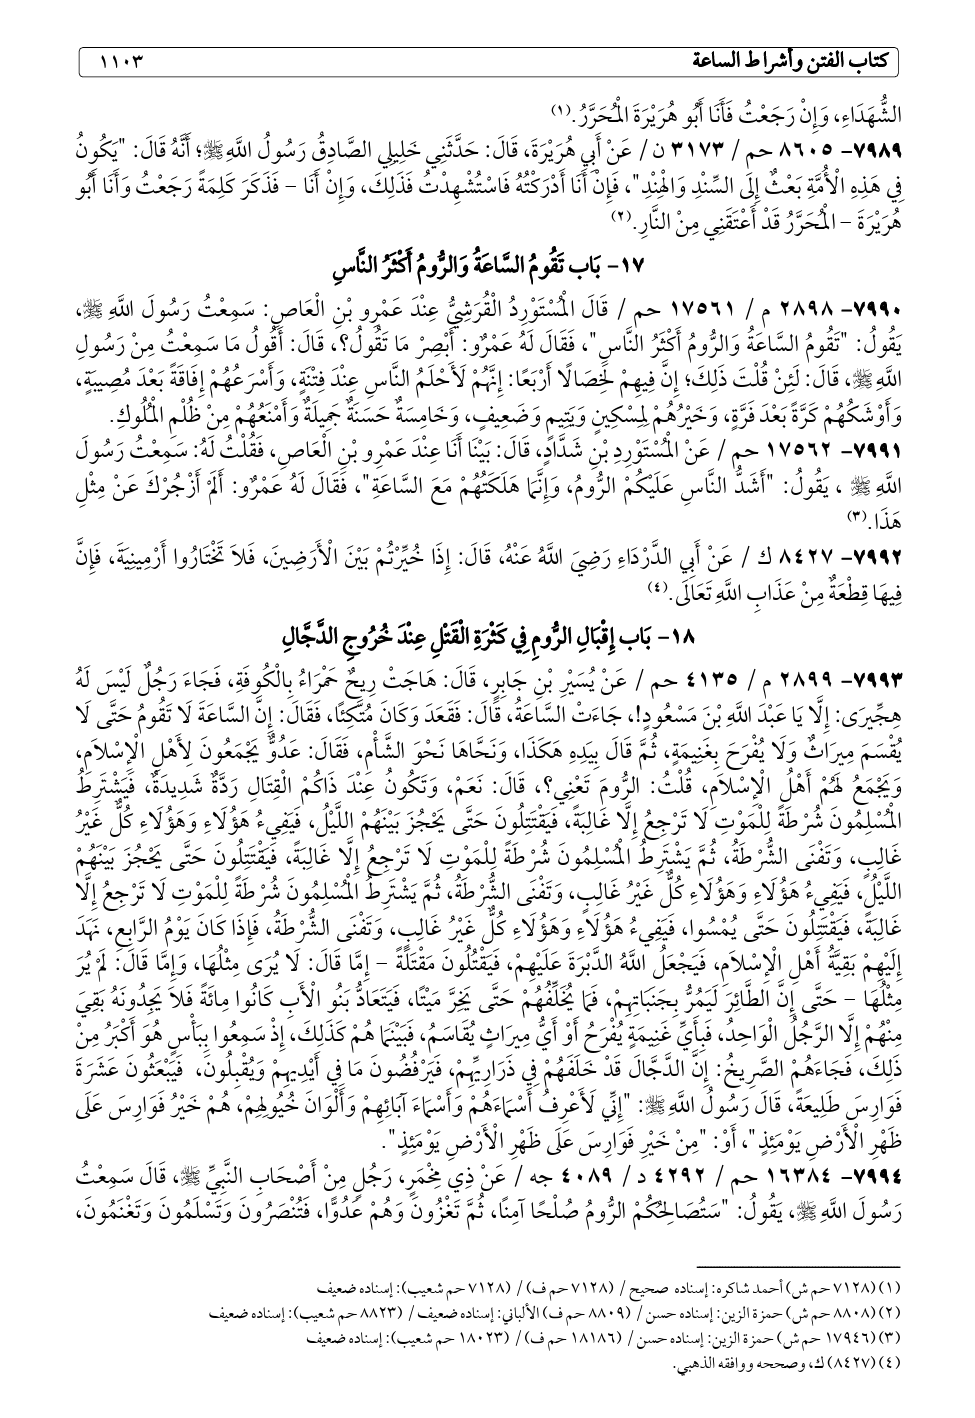 كتاب الفتن وأشراط الساعة
١١٠٣
الشُّهَدَاءِ، وَإِنْ رَجَعْتُ فَأَنَا أَبُو هُرَيْرَةَ الْمُحَرَّرُ.(١)
٧٩٨٩- ٨٦٠٥ حم / ٣١٧٣ ن / عَنْ أَبِي هُرَيْرَةَ، قَالَ: حَدَّثَنِي خَلِيلِي الصَّادِقُ رَسُولُ اللَّهِ ﷺ؛ أَنَّهُ قَالَ: "يَكُونُ
فِي هَذِهِ الْأُمَّةِ بَعْثٌ إِلَى السِّنْدِ وَالْهِنْدِ"، فَإِنْ أَنَا أَدْرَكْتُهُ فَاسْتُشْهِدْتُ فَذَلِكَ، وَإِنْ أَنَا – فَذَكَرَ كَلِمَةً رَجَعْتُ وَأَنَا أَبُو
هُرَيْرَةَ – الْمُحَرَّرُ قَدْ أَعْتَقَنِي مِنْ النَّارِ.(٢)
١٧- بَاب تَقُومُ السَّاعَةُ وَالرُّومُ أَكْثَرُ النَّاسِ
٧٩٩٠- ٢٨٩٨ م / ١٧٥٦١ حم / قَالَ الْمُسْتَوْرِدُ الْقُرَشِيُّ عِنْدَ عَمْرِو بْنِ الْعَاصِ: سَمِعْتُ رَسُولَ اللَّهِ ﷺ،
يَقُولُ: "تَقُومُ السَّاعَةُ وَالرُّومُ أَكْثَرُ النَّاسِ"، فَقَالَ لَهُ عَمْرٌو: أَبْصِرْ مَا تَقُولُ؟، قَالَ: أَقُولُ مَا سَمِعْتُ مِنْ رَسُولِ
اللَّهِ ﷺ، قَالَ: لَئِنْ قُلْتَ ذَلِكَ؛ إِنَّ فِيهِمْ لَخِصَالًا أَرْبَعًا: إِنَّهُمْ لَأَحْلَمُ النَّاسِ عِنْدَ فِتْنَةٍ، وَأَسْرَعُهُمْ إِفَاقَةً بَعْدَ مُصِيبَةٍ،
وَأَوْشَكُهُمْ كَرَّةً بَعْدَ فَرَّةٍ، وَخَيْرُهُمْ لِمِسْكِينٍ وَيَتِيمٍ وَضَعِيفٍ، وَخَامِسَةٌ حَسَنَةٌ جَمِيلَةٌ وَأَمْنَعُهُمْ مِنْ ظُلْمِ الْمُلُوكِ.
٧٩٩١- ١٧٥٦٢ حم / عَنْ الْمُسْتَوْرِدِ بْنِ شَدَّادٍ، قَالَ: بَيْنَا أَنَا عِنْدَ عَمْرِو بْنِ الْعَاصِ، فَقُلْتُ لَهُ: سَمِعْتُ رَسُولَ
اللَّهِ ﷺ ، يَقُولُ: "أَشَدُّ النَّاسِ عَلَيْكُمْ الرُّومُ، وَإِنَّمَا هَلَكَتُهُمْ مَعَ السَّاعَةِ"، فَقَالَ لَهُ عَمْرٌو: أَلَمْ أَزْجُرْكَ عَنْ مِثْلِ
هَذَا.(٣)
٧٩٩٢- ٨٤٢٧ ك / عَنْ أَبِي الدَّرْدَاءِ رَضِيَ اللَّهُ عَنْهُ، قَالَ: إِذَا خُيِّرْتُمْ بَيْنَ الْأَرَضِينَ، فَلاَ تَخْتَارُوا أَرْمِينِيَةَ، فَإِنَّ
فِيهَا قِطْعَةٌ مِنْ عَذَابِ اللَّهِ تَعَالَى.(٤)
١٨- بَاب إِقْبَالِ الرُّومِ فِي كَثْرَةِ الْقَتْلِ عِنْدَ خُرُوجِ الدَّجَّالِ
٧٩٩٣- ٢٨٩٩ م / ٤١٣٥ حم / عَنْ يُسَيْرِ بْنِ جَابِرٍ، قَالَ: هَاجَتْ رِيحٌ حَمْرَاءُ بِالْكُوفَةِ، فَجَاءَ رَجُلٌ لَيْسَ لَهُ
هِجِّيرَى: إِلَّا يَا عَبْدَ اللَّهِ بْنَ مَسْعُودٍ!، جَاءَتْ السَّاعَةُ، قَالَ: فَقَعَدَ وَكَانَ مُتَّكِئًا، فَقَالَ: إِنَّ السَّاعَةَ لَا تَقُومُ حَتَّى لَا
يُقْسَمَ مِيرَاثٌ وَلَا يُفْرَحَ بِغَنِيمَةٍ، ثُمَّ قَالَ بِيَدِهِ هَكَذَا، وَنَحَّاهَا نَحْوَ الشَّأْمِ، فَقَالَ: عَدُوٌّ يَجْمَعُونَ لِأَهْلِ الْإِسْلَامِ،
وَيَجْمَعُ لَهُمْ أَهْلُ الْإِسْلَامِ، قُلْتُ: الرُّومَ تَعْنِي؟، قَالَ: نَعَمْ، وَتَكُونُ عِنْدَ ذَاكُمْ الْقِتَالِ رَدَّةٌ شَدِيدَةٌ، فَيَشْتَرِطُ
الْمُسْلِمُونَ شُرْطَةً لِلْمَوْتِ لَا تَرْجِعُ إِلَّا غَالِبَةً، فَيَقْتَتِلُونَ حَتَّى يَحْجُزَ بَيْنَهُمْ اللَّيْلُ، فَيَفِيءُ هَؤُلَاءِ وَهَؤُلَاءِ كُلٌّ غَيْرُ
غَالِبٍ، وَتَفْنَى الشُّرْطَةُ، ثُمَّ يَشْتَرِطُ الْمُسْلِمُونَ شُرْطَةً لِلْمَوْتِ لَا تَرْجِعُ إِلَّا غَالِبَةً، فَيَقْتَتِلُونَ حَتَّى يَحْجُزَ بَيْنَهُمْ
اللَّيْلُ، فَيَفِيءُ هَؤُلَاءِ وَهَؤُلَاءِ كُلٌّ غَيْرُ غَالِبٍ، وَتَفْنَى الشُّرْطَةُ، ثُمَّ يَشْتَرِطُ الْمُسْلِمُونَ شُرْطَةً لِلْمَوْتِ لَا تَرْجِعُ إِلَّا
غَالِبَةً، فَيَقْتَتِلُونَ حَتَّى يُمْسُوا، فَيَفِيءُ هَؤُلَاءِ وَهَؤُلَاءِ كُلٌّ غَيْرُ غَالِبٍ، وَتَفْنَى الشُّرْطَةُ، فَإِذَا كَانَ يَوْمُ الرَّابِعِ، نَهَدَ
إِلَيْهِمْ بَقِيَّةُ أَهْلِ الْإِسْلَامِ، فَيَجْعَلُ اللَّهُ الدَّبْرَةَ عَلَيْهِمْ، فَيَقْتُلُونَ مَقْتَلَةً – إِمَّا قَالَ: لَا يُرَى مِثْلُهَا، وَإِمَّا قَالَ: لَمْ يُرَ
مِثْلُهَا – حَتَّى إِنَّ الطَّائِرَ لَيَمُرُّ بِجَنَبَاتِهِمْ، فَمَا يُخَلِّفُهُمْ حَتَّى يَخِرَّ مَيْتًا، فَيَتَعَادُّ بَنُو الْأَبِ كَانُوا مِائَةً فَلاَ يَجِدُونَهُ بَقِيَ
مِنْهُمْ إِلَّا الرَّجُلُ الْوَاحِدُ، فَبِأَيِّ غَنِيمَةٍ يُفْرَحُ أَوْ أَيُّ مِيرَاثٍ يُقَاسَمُ، فَبَيْنَمَا هُمْ كَذَلِكَ، إِذْ سَمِعُوا بِبَأْسٍ هُوَ أَكْبَرُ مِنْ
ذَلِكَ، فَجَاءَهُمْ الصَّرِيخُ: إِنَّ الدَّجَّالَ قَدْ خَلَفَهُمْ فِي ذَرَارِيِّهِمْ، فَيَرْفُضُونَ مَا فِي أَيْدِيهِمْ وَيُقْبِلُونَ، فَيَبْعَثُونَ عَشَرَةَ
فَوَارِسَ طَلِيعَةً، قَالَ رَسُولُ اللَّهِ ﷺ: "إِنِّي لَأَعْرِفُ أَسْمَاءَهُمْ وَأَسْمَاءَ آبَائِهِمْ وَأَلْوَانَ خُيُولِهِمْ، هُمْ خَيْرُ فَوَارِسَ عَلَى
ظَهْرِ الْأَرْضِ يَوْمَئِذٍ"، أَوْ: "مِنْ خَيْرِ فَوَارِسَ عَلَى ظَهْرِ الْأَرْضِ يَوْمَئِذٍ".
٧٩٩٤- ١٦٣٨٤ حم / ٤٢٩٢ د / ٤٠٨٩ جه / عَنْ ذِي مِخْمَرٍ، رَجُلٍ مِنْ أَصْحَابِ النَّبِيِّ ﷺ، قَالَ سَمِعْتُ
رَسُولَ اللَّهِ ﷺ، يَقُولُ: "سَتُصَالِحُكُمْ الرُّومُ صُلْحًا آمِنًا، ثُمَّ تَغْزُونَ وَهُمْ عَدُوًّا، فَتُنْصَرُونَ وَتَسْلَمُونَ وَتَغْنَمُونَ،
(١) (٧١٢٨ حم ش) أحمد شاكره: إسناده صحيح / (٧١٢٨ حم ف) / (٧١٢٨ حم شعيب): إسناده ضعيف
(٢) (٨٨٠٨ حم ش) حمزة الزين: إسناده حسن / (٨٨٠٩ حم ف) الألباني: إسناده ضعيف / (٨٨٢٣ حم شعيب): إسناده ضعيف
(٣) (١٧٩٤٦ حم ش) حمزة الزين: إسناده حسن / (١٨١٨٦ حم ف) / (١٨٠٢٣ حم شعيب): إسناده ضعيف
(٤) (٨٤٢٧) ك، وصححه ووافقه الذهبي.